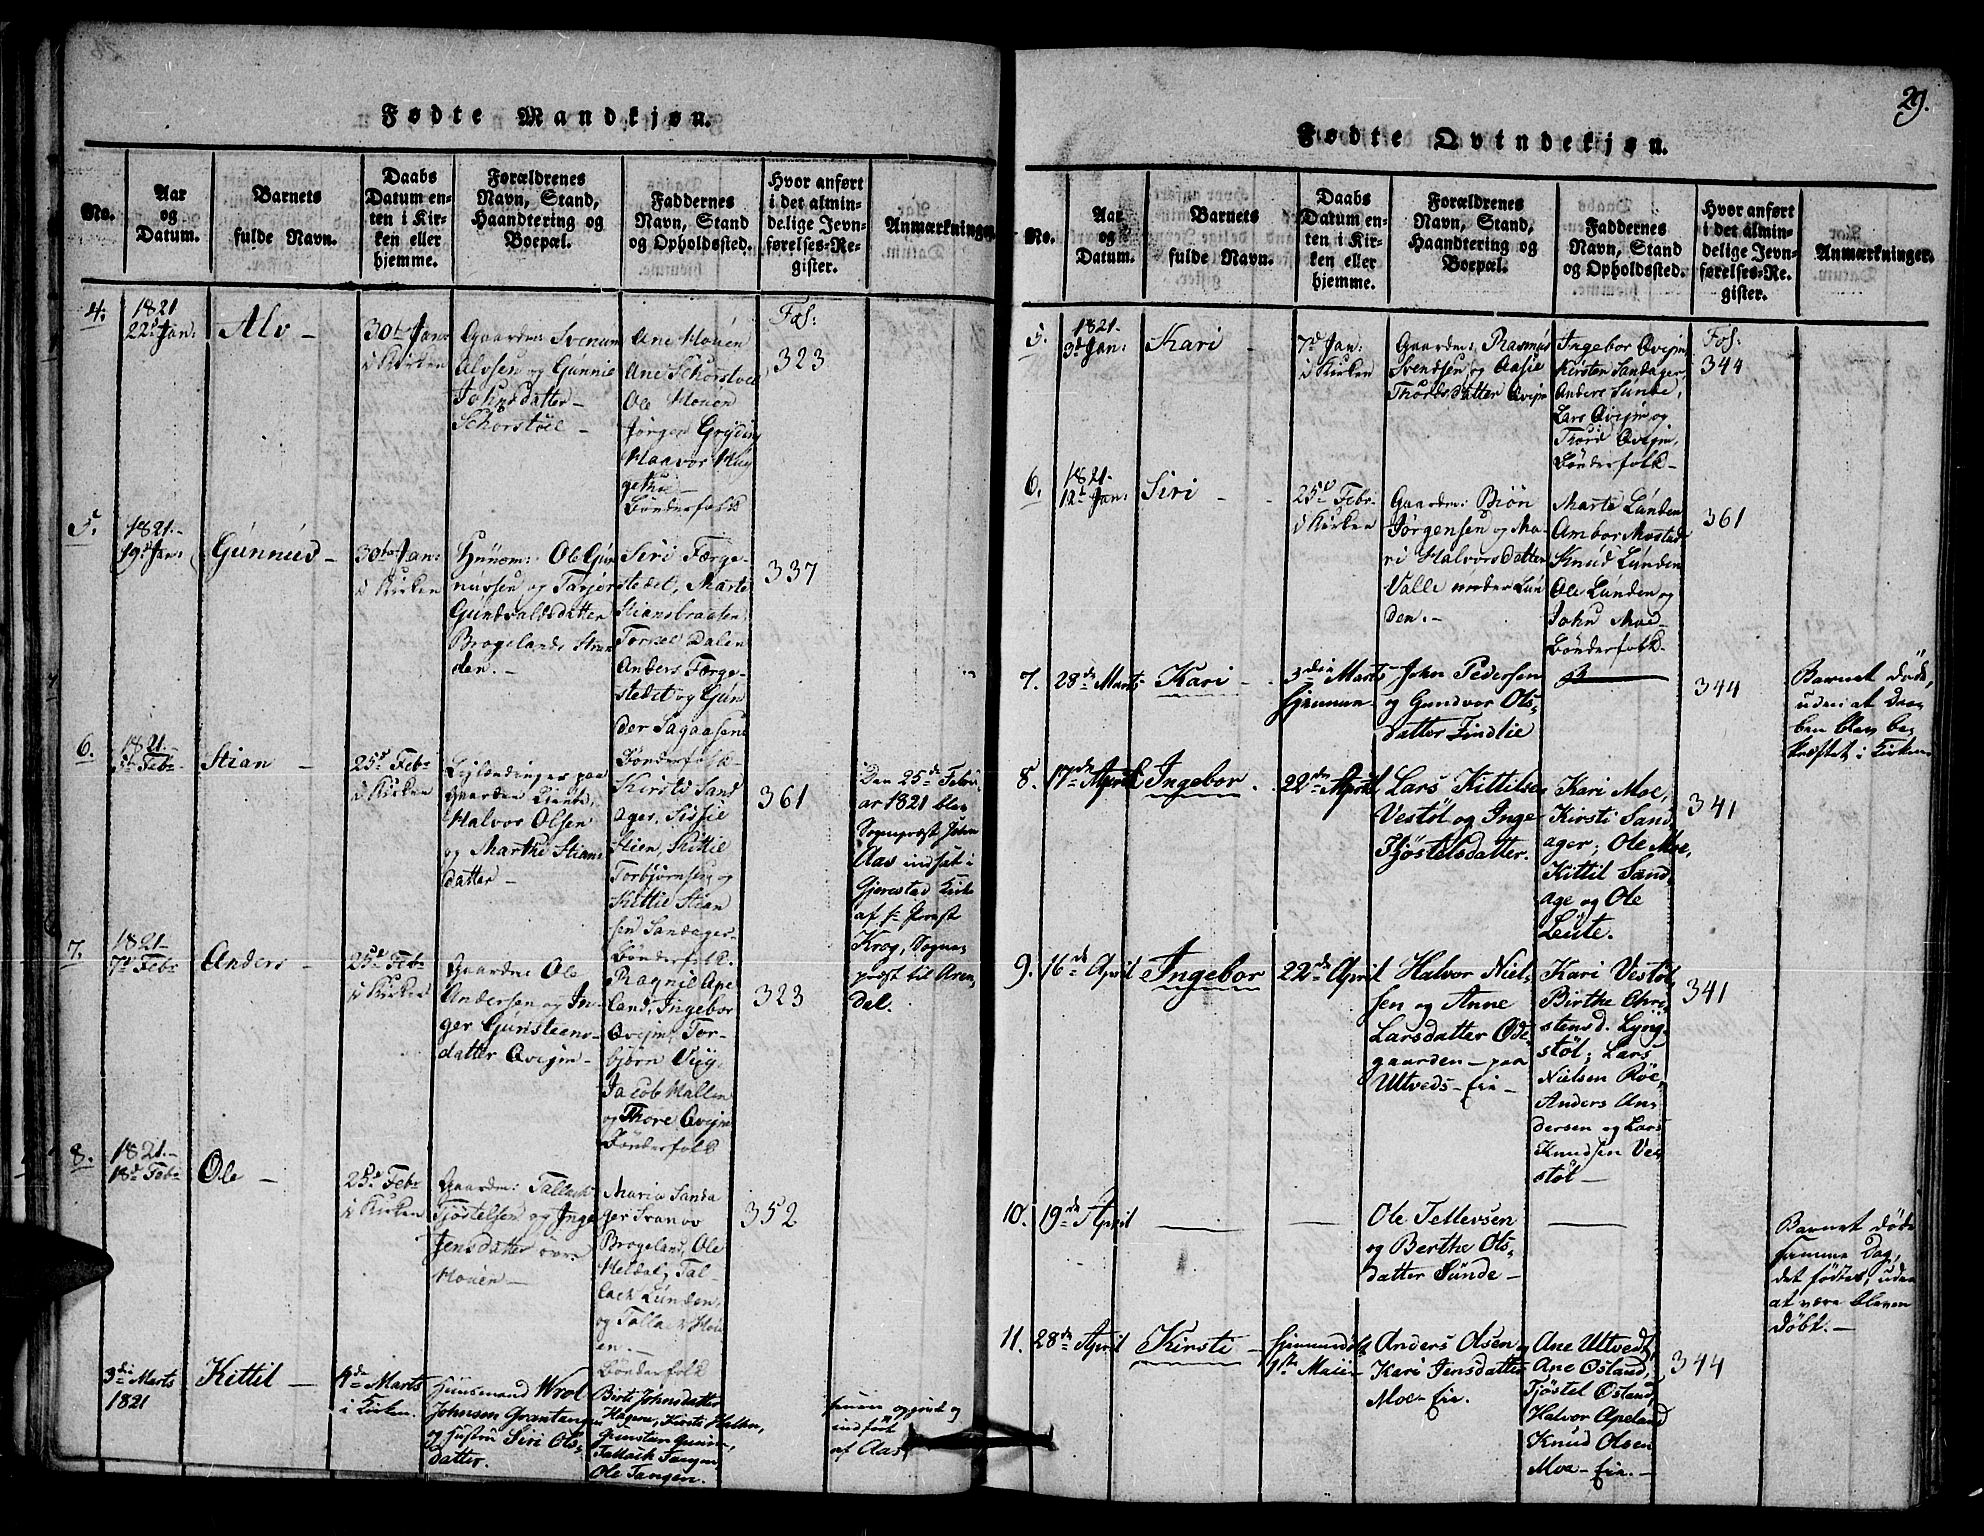 Fødte Mandkjøn.
No.
Aar
og
Datum.
Barnets
fulde Navn.
Daabs
Datum en-
ten i Kir-
ken eller
hjemme.
Forældrenes
Navn, Stand,
Haandtering og
Boepæl.
Faddernes
Navn, Stand
og Opholdssted.
Hvor anført
i det almin-
delige Jevn-
førelses-Re-
gister.
Anmærkninger
4.
1821
22d Jan:
Alv –
30te Jan:
i Kirken
Gaardm: Svenum
Alvsen og Gunnie
Johnsdatter –
Schorstöel –
Ane Houen
Ane Schorstoel
Ole Houen
Jörgen Gryting
Haavor
Bönderfolk
Fol:
323
5.
1821.
19d Jan:
Gunnuv –
30te Jan:
i Kirken
Huusm: Ole Gun
nufsen og Tarjer
Gundvaldsdatter
Brogelands Stran
den. –
Siri Færge-
stedet, Marte
Stiansbraaten,
Torkel Dalen
Anders Færge-
stedet og Gun
der Sagaasen
Bönderfolk –
337
6.
1821. –
5te Febr
Stian –
25d Febr
i Kirken
Leilændinger paa
Gaarden
Halvor Olsen
og Marthe Stians
datter –
Kirsti Sand
ager, Sissie
Stien, Kittil
Torbjörnsen og
Kittil Stian
sen Sandager –
Bönderfolk.
361
Den 25de Febru
ar 1821 blev
Sognepræst John
Aas indsat i
Gjerestad Kirke
af Hr. Provst
Krog, Sogne-
præst til Aren
dal.
7.
1821 –
7d Febr
Anders –
25d Febr
i Kirken
Gaardm: Ole
Andersen og In-
ger Gunsteens-
datter Qvejm –
Ragnil Ape
land, Ingebor
Qvejm, Tor-
björn Ulig,
Jacob Hallen
og Thore Qvejm
Bönderfolk
323
8.
1821. –
18d Febr
Ole –
25d Febr
i Kirken
Gaardm: Tallack
Tjöstelsen og Inge
Jensdatter övre
Houen –
Maria Sanda
ger Svanov
Brogeland, Ole
Heldal, Tal-
lack Lunden,
og Tallack Hou
en. –
Bönderfolk
352
3die Marts
1821
Kittil –
4de Marts
i Kirken.
Huusmand Wrol
Johnsen Grantangen
og Hustru Siri Ols-
datter.
Birte Johnsdatter
Hagene, Kirsti Hallen,
Gunsten
Tallack Tangen,
Ole Tangen.
indfört
af Aas
29.
Fødte Qvindekjøn.
No.
Aar
og
Datum.
Barnets
fulde Navn.
Daabs
Datum en-
ten i Kir-
ken eller
hjemme.
Forældrenes
Navn, Stand,
Haandtering og
Boepæl.
Faddernes
Navn, Stand
og Opholdssted.
Hvor anført
i det almin-
delige Jevn-
førelses-Re-
gister.
Anmærkninger.
5.
1821.
3d Jan:
Kari –
7d Jan:
i Kirken
Gaardm: Rasmus
Svendsen og Aasie
Thordsdatter Qvejm
Ingebor Qvejm,
Kirsten Sandager,
Anders Sunde,
Lars Qvejm og
Thord Qvejm,
Bönderfolk –
Fol:
344
6.
1821.
12d Jan:
Siri –
25d Febr
i Kirken
Gaardm: Biön
Jörgensen og Ma-
ri Halvorsdatter
Valle neder Lun
den. –
Marte Lunden
Ambor Mostad
Knud Lunden
Ole Lunden og
John Moe –
Bönderfolk.
361
7.
28de Marts
Kari –
3die Marts
hjemme –
John Pedersen
og Gundvor Ols-
datter Lindlie
344
Barnet döde,
uden at Daa-
ben blev be-
kræftet i Kirken
8.
17de April
Ingebor.
22de April
Lars Kittilsen
Vestöl og Inge
Tjöstelsdatter.
Kari Moe,
Kirsti Sand-
ager; Ole Moe,
Kittil Sand
age og Ole
Leute.
341
9.
16de April
Ingebor
22de April
Halvor Niel-
sen og Anne
Larsdatter Öde-
gaarden – paa
Ultveds – Eie –
Kari Vestöl
Birthe Chri
stensd. Lyng-
stöl; Lars
Nielsen Röe,
Anders An-
dersen og Lars
Knudsen Ve-
stöl –
341
10.
19de April
Ole Tellevsen
og Berthe Ols-
datter Sunde –
Barnet döde
samme Dag,
det födtes, uden
at være bleven
döbt. –
11.
28de April
Kirsti –
hjemmedöbt
1ste Maii
Anders Olsen og
Kari Jensdatter
Moe – Eie.
Ane Ultvedt,
Ane Östand,
Tjöstel Östand,
Halvor Apeland
Knud Olsen
Moe – Eie. –
344